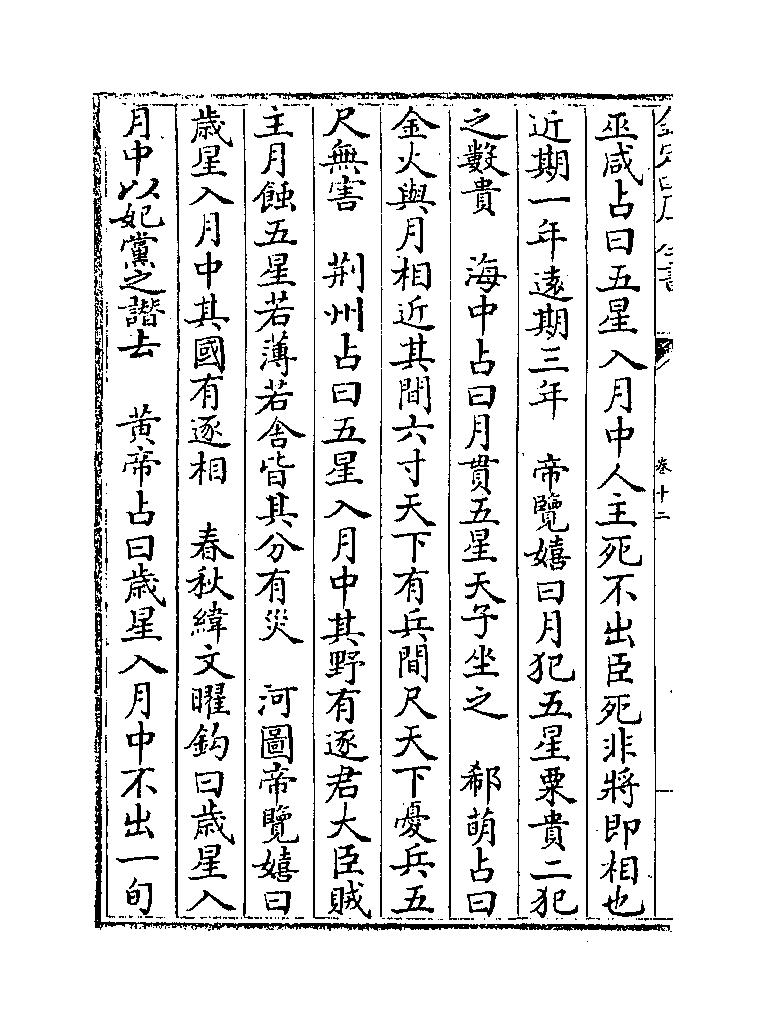 巫咸占曰五星入月中人主死不出臣死非將即相也
近期一年遠期三年　帝覽嬉曰月犯五星粟貴二犯
之數貴　海中占曰月貫五星天子坐之　郗萌占曰
金火與月相近其間六寸天下有兵間尺天下憂兵五
尺無害　荆州占曰五星入月中其野有逐君大臣賊
主月蝕五星若薄若舎皆其分有災　河圖帝覽嬉曰
歲星入月中其國有逐相　春秋緯文曜鈎曰歲星入
月中以妃黨之譖去　黄帝占曰歲星入月中不出一旬
卷十二